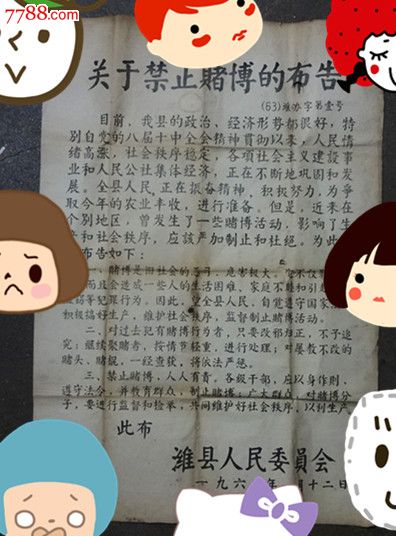 7788.com
关于禁止赌博的布告
(63)维办字第壹号
目前,我县的政治、经济形势都很好,特
别自党的八届十中全会精神贯彻以来,人民情
绪高涨,社会秩序稳定,各项社会主义建设事
业和人民公社集体经济,正在不断地巩固和发
展。全县人民,正在振奋精神,积极努力,为争
取今年的农业丰收,进行准备。但是,近来在
个别地区,曾发生了一些赌博活动,影响了生
和社会秩序,应该严加制止和杜绝。为此
布告如下:
赌博是旧社会的 危害极大,它不仅
而且会造成一些人的生活困难、家庭不睦和引
等犯罪行为。因此,望全县人民,自觉遵守国家法
积极搞好生产,维护社会秩序,监督制止赌博活动。
二、对过去犯有赌博行为者,只要改邪归正,不予追
究;继续聚赌者,按情节轻重,进行处理;对屡教不改的
赌头、赌棍,一经查获,将依法严惩。
三、禁止赌博,人人有责。各级干部,应以身作则,
遵守法令,并教育群众,制止赌博;广大群众,对赌博分
子,要进行监督和检举,共同维护好社会秩序,以利生产
此布
潍县人民委员会
一九六 年 月十二日